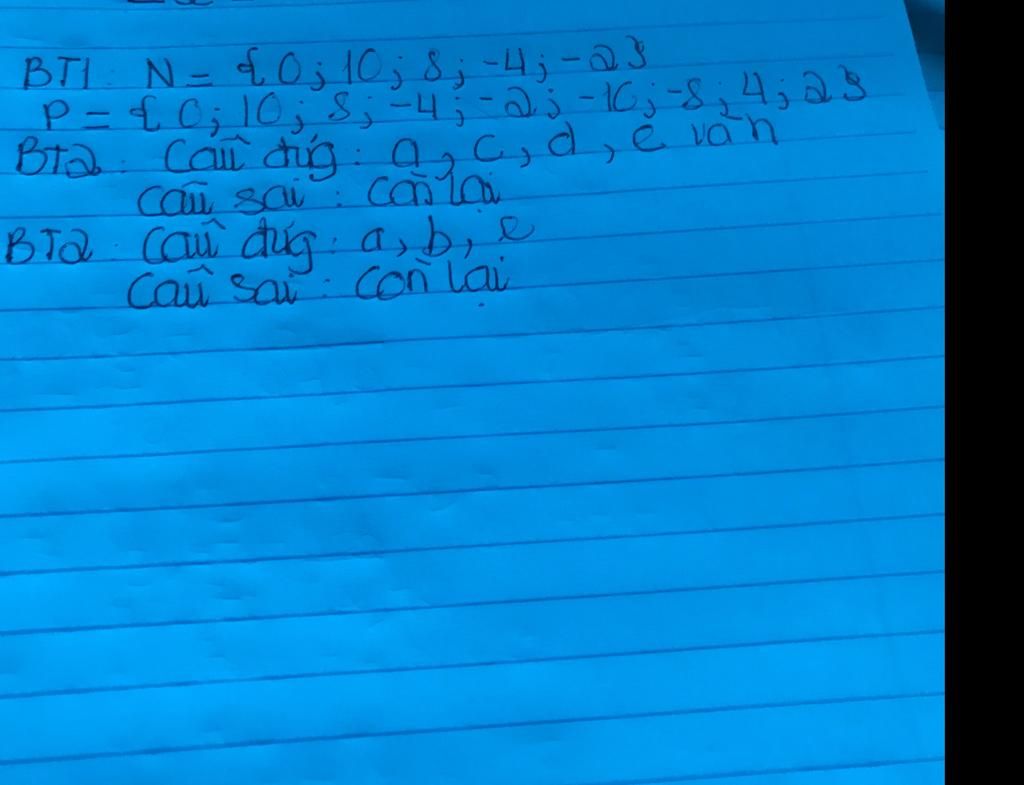 BT1: N = {0; 10; 8; -4; -2}
P = {0; 10; 8; -4; -2; -10; -8; 4; 2}
BT2: Câu đúg: a, c, d, e
câu sai: còn lại
BT2: Câu đúg: a, b, e
Câu sai: còn lại